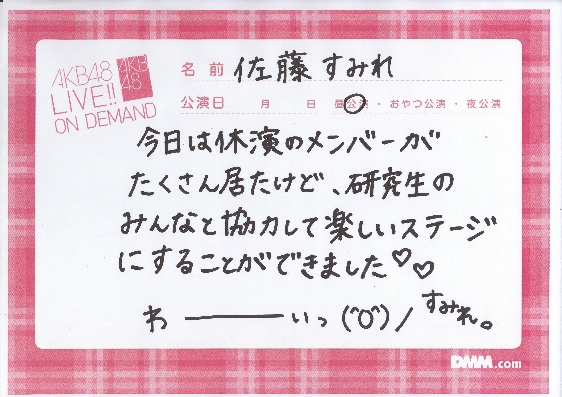 AKB48
LIVE!!
ON DEMAND
AKB
48
名前 佐藤 すみれ
公演日 月 日 昼公演・おやつ公演・夜公演
今日は休演のメンバーが
たくさん居たけど、研究生の
みんなと協力して楽しいステージ
にすることができました♡♡
わ――――いっ(^O^)/ すみれ。
DMM.com